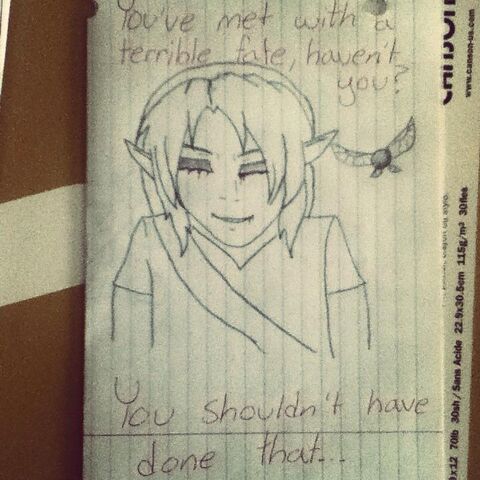 You've met with a
terrible fate, haven't
you?
You shouldn't have
done that...
CANSON
www.canson-us.com
9x12 70lb 30sh / Sans Acide 22.9x30.5cm 115g/m² 30fles